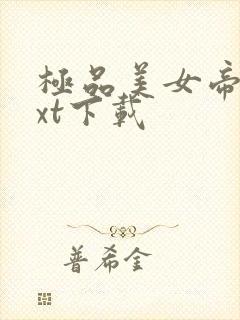 極品美女帝
xt下載
普希金